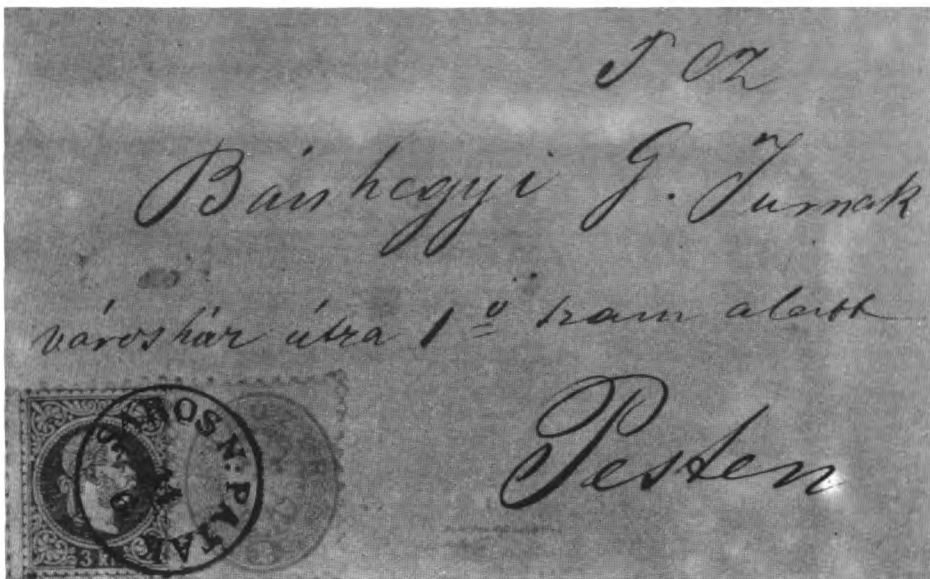 T CZ
Bánhegyi G. Jurnak
városház útza 1ő szám alatt
Pesten
SÁROS N: PATAK
3 kr